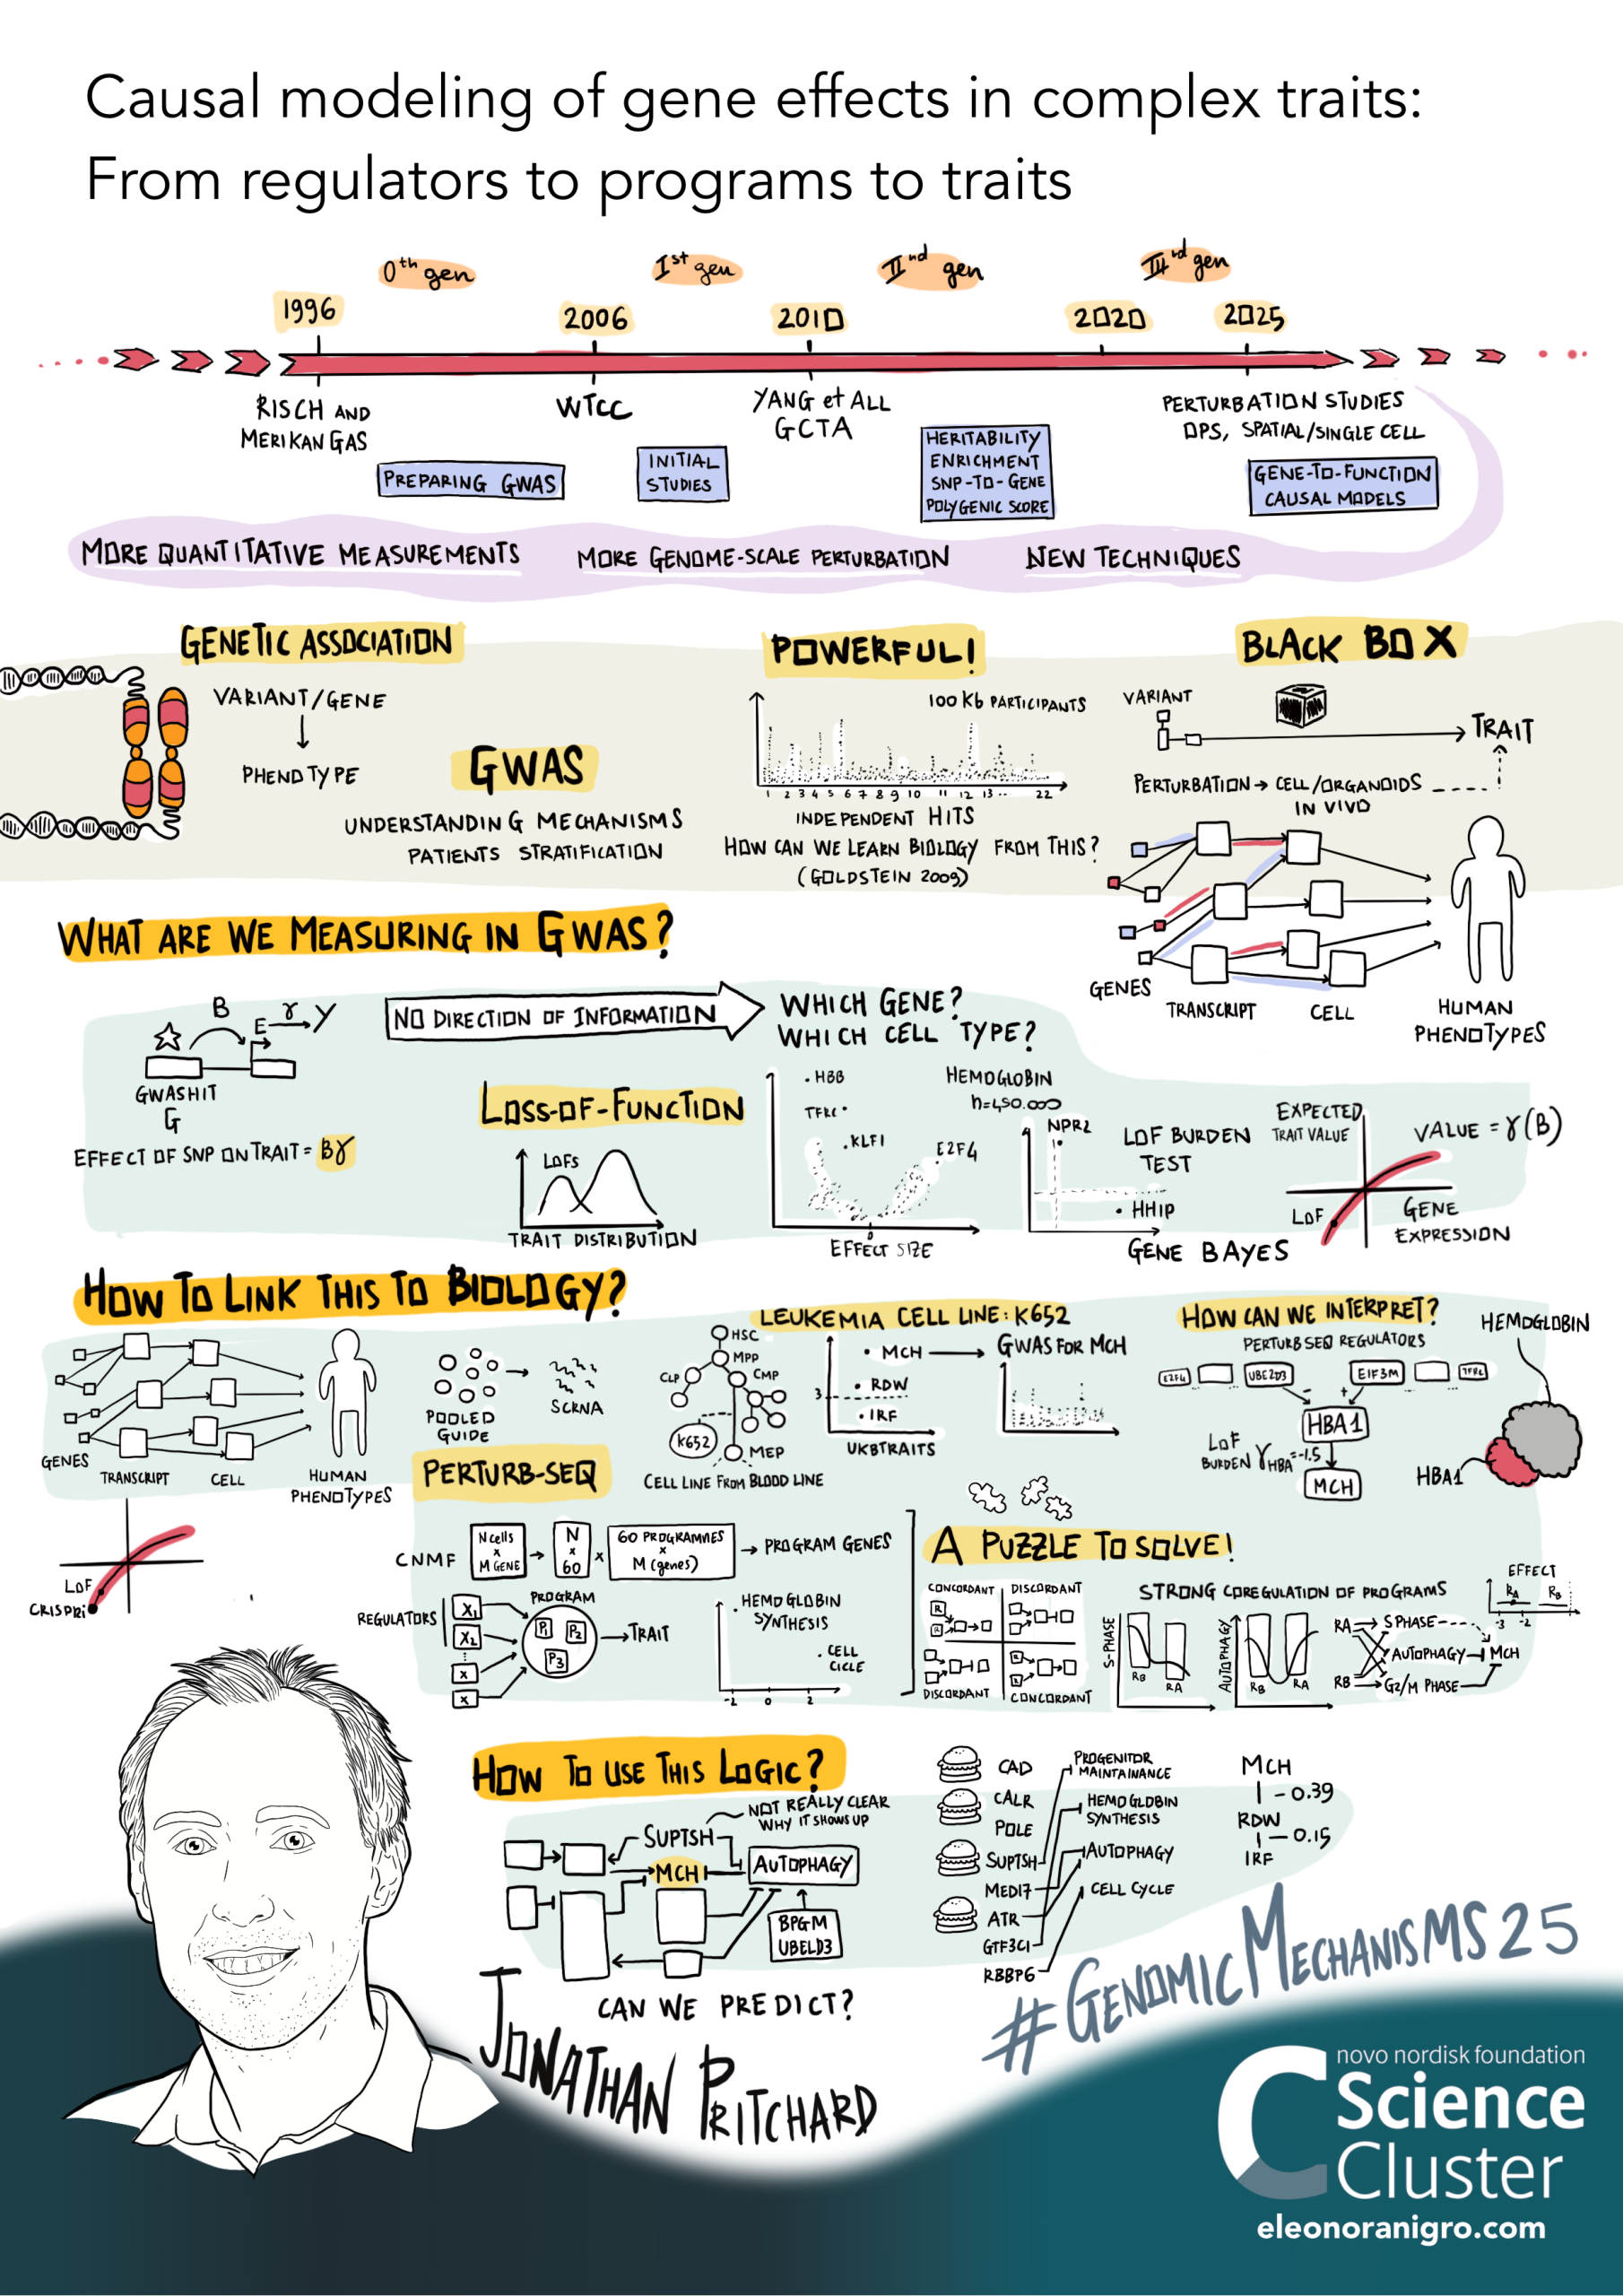 Causal modeling of gene effects in complex traits:
From regulators to programs to traits
0th gen
Ist gen
IInd gen
IIIrd gen
1996
2006
2010
2020
2025
RISCH AND
MERIKAN GAS
WTCC
YANG et ALL
GCTA
PERTURBATION STUDIES
DPS, SPATIAL/SINGLE CELL
PREPARING GWAS
INITIAL
STUDIES
HERITABILITY
ENRICHMENT
SNP-TO-GENE
POLYGENIC SCORE
GENE-TO-FUNCTION
CAUSAL MODELS
MORE QUANTITATIVE MEASUREMENTS
MORE GENOME-SCALE PERTURBATION
NEW TECHNIQUES
GENETIC ASSOCIATION
VARIANT/GENE
PHENOTYPE
GWAS
UNDERSTANDING MECHANISMS
PATIENTS STRATIFICATION
POWERFUL!
100 Kb PARTICIPANTS
1 2 3 4 5 6 7 8 9 10 11 12 13 .. 22
INDEPENDENT HITS
HOW CAN WE LEARN BIOLOGY FROM THIS?
(GOLDSTEIN 2009)
BLACK BOX
VARIANT
TRAIT
PERTURBATION → CELL/ORGANOIDS
IN VIVO
GENES
TRANSCRIPT
CELL
HUMAN
PHENOTYPES
WHAT ARE WE MEASURING IN GWAS?
B
E
γ
Y
GWAS HIT
G
EFFECT OF SNP ON TRAIT = Bγ
NO DIRECTION OF INFORMATION
WHICH GENE?
WHICH CELL TYPE?
LOSS-OF-FUNCTION
LOFs
TRAIT DISTRIBUTION
HBB
TFRC
KLF1
E2F4
0
EFFECT SIZE
HEMOGLOBIN
n=450.000
NPR2
HHIP
LOF BURDEN
TEST
GENE BAYES
EXPECTED
TRAIT VALUE
VALUE = γ(B)
LOF
GENE
EXPRESSION
HOW TO LINK THIS TO BIOLOGY?
GENES
TRANSCRIPT
CELL
HUMAN
PHENOTYPES
LOF
CRISPRi
POOLED
GUIDE
SCRNA
PERTURB-SEQ
HSC
MPP
CLP
CMP
K652
MEP
CELL LINE FROM BLOOD LINE
LEUKEMIA CELL LINE: K652
MCH
3
RDW
IRF
UKBTRAITS
GWAS FOR MCH
HOW CAN WE INTERPRET?
PERTURBSEQ REGULATORS
E2F4
UBE2D3
EIF3M
TFRC
-
+
HBA1
LOF
BURDEN γHBA=-1.5
MCH
HEMOGLOBIN
HBA1
CNMF
N cells
x
M GENE
N
x
60
x
60 PROGRAMMES
x
M (genes)
→ PROGRAM GENES
REGULATORS
X1
X2
X
X
PROGRAM
P1
P2
P3
TRAIT
HEMOGLOBIN
SYNTHESIS
CELL
CICLE
-2 0 2
A PUZZLE TO SOLVE!
CONCORDANT
DISCORDANT
R
R
R
R
DISCORDANT
CONCORDANT
STRONG COREGULATION OF PROGRAMS
S-PHASE
RB
RA
AUTOPHAGY
RB
RA
RA
RB
S PHASE
AUTOPHAGY
G2/M PHASE
MCH
EFFECT
RA
RB
-3 -2
HOW TO USE THIS LOGIC?
NOT REALLY CLEAR
WHY IT SHOWS UP
SUPT5H
MCH
AUTOPHAGY
BPGM
UBELD3
CAN WE PREDICT?
CAD
CALR
POLE
SUPT5H
MED17
ATR
GTF3C1
RBBP6
PROGENITOR
MAINTAINANCE
HEMOGLOBIN
SYNTHESIS
AUTOPHAGY
CELL CYCLE
MCH
- 0.39
RDW
- 0.15
IRF
JONATHAN PRITCHARD
#GENOMICMECHANISMS25
novo nordisk foundation
Science
Cluster
eleonoranigro.com